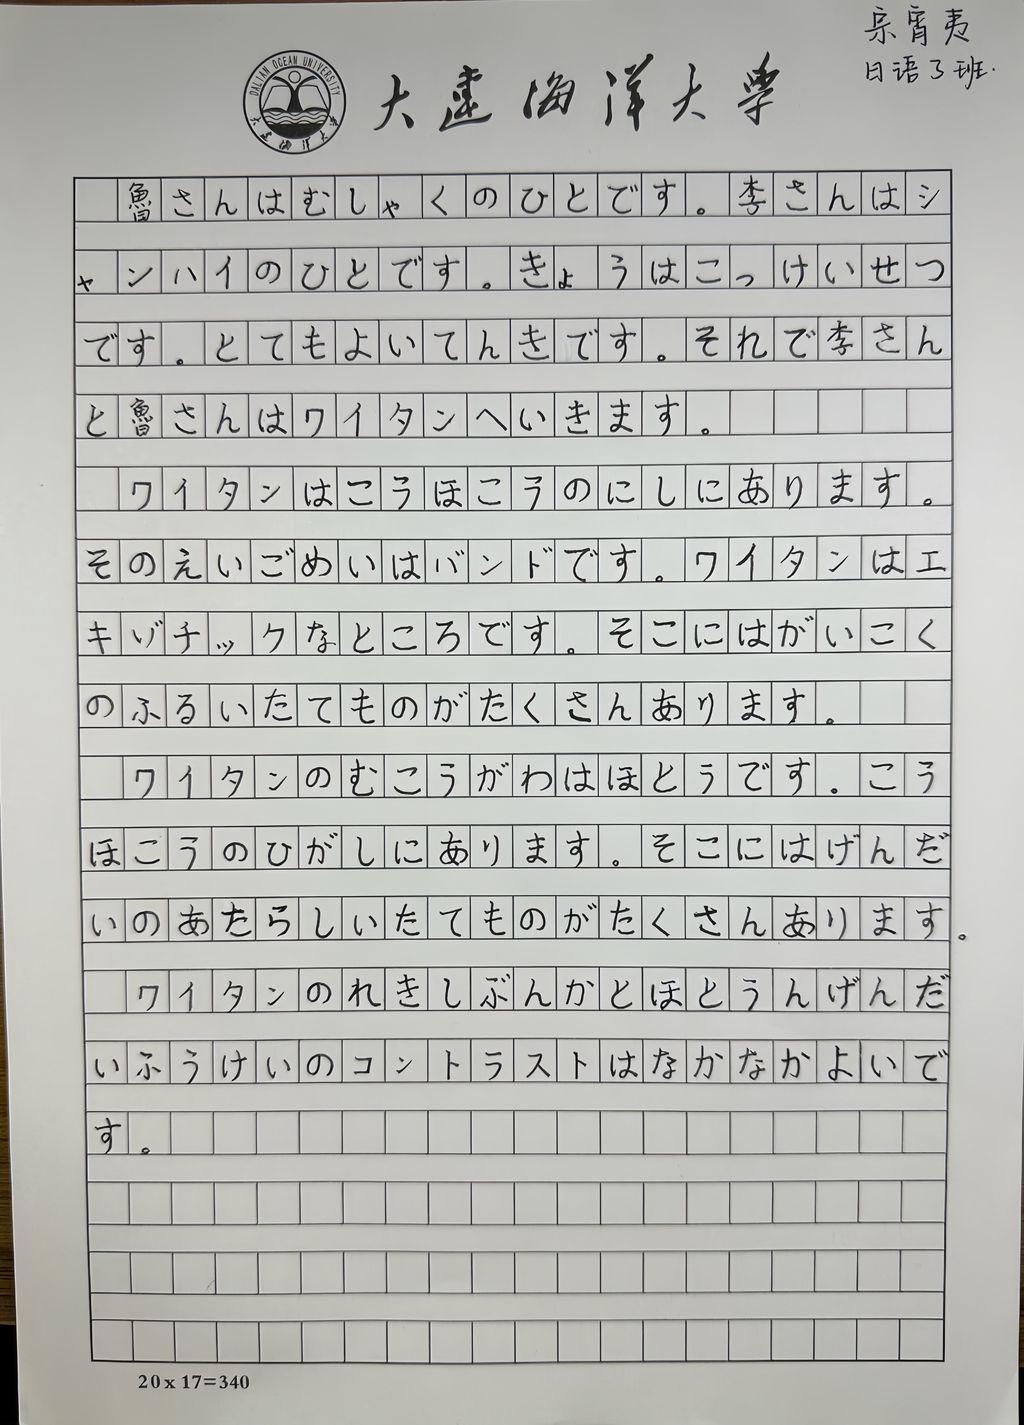 宗霄夷
日语3班.
DALIAN OCEAN UNIVERSITY
大连海洋大学
大连海洋大学
魯さんはむしゃくのひとです。李さんはシ
ャンハイのひとです。きょうはこっけいせつ
です。とてもよいてんきです。それで李さん
と魯さんはワイタンへいきます。
ワイタンはこうほこうのにしにあります。
そのえいごめいはバンドです。ワイタンはエ
キゾチックなところです。そこにはがいこく
のふるいたてものがたくさんあります。
ワイタンのむこうがわはほとうです。こう
ほこうのひがしにあります。そこにはげんだ
いのあたらしいたてものがたくさんあります。
ワイタンのれきしぶんかとほとうんげんだ
いふうけいのコントラストはなかなかよいで
す。
20x17=340